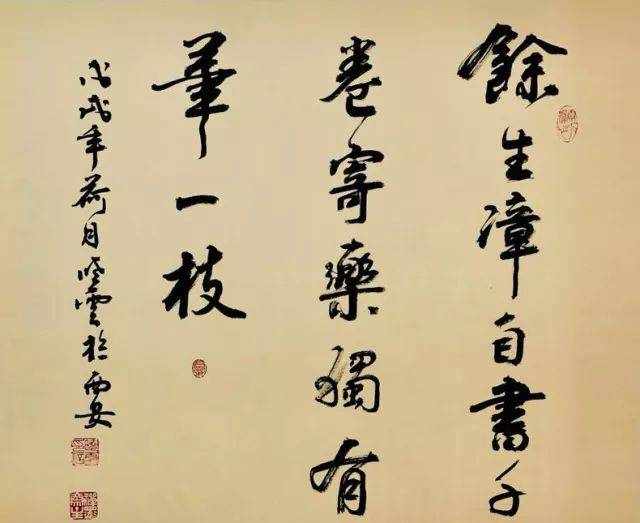 餘生漳自書千
卷寄藥獨有
華一枝
戊戌年荷月 雲於西安